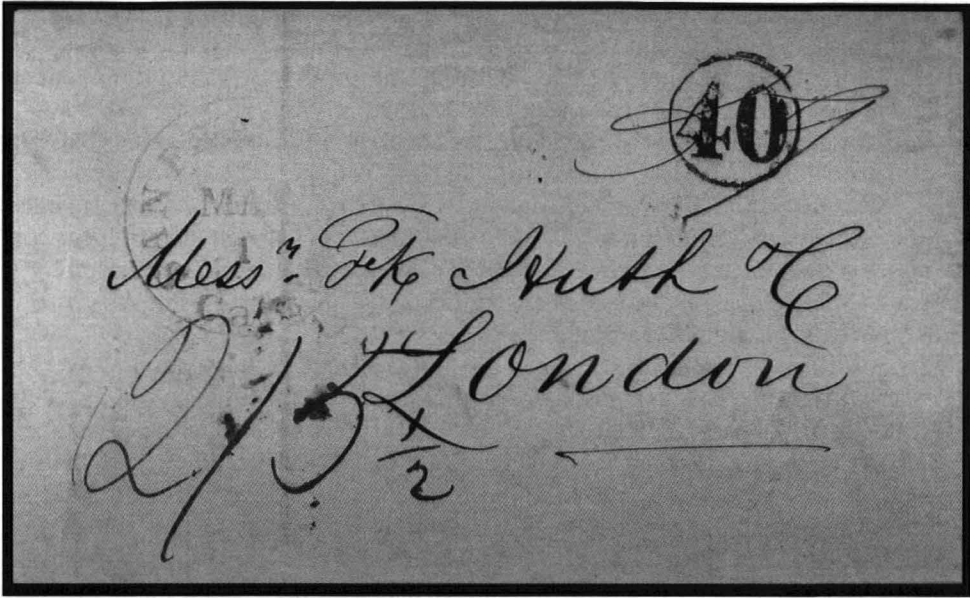 40
MA
1
Ca
Messrs Fk Huth & C
London
2/5 1/2